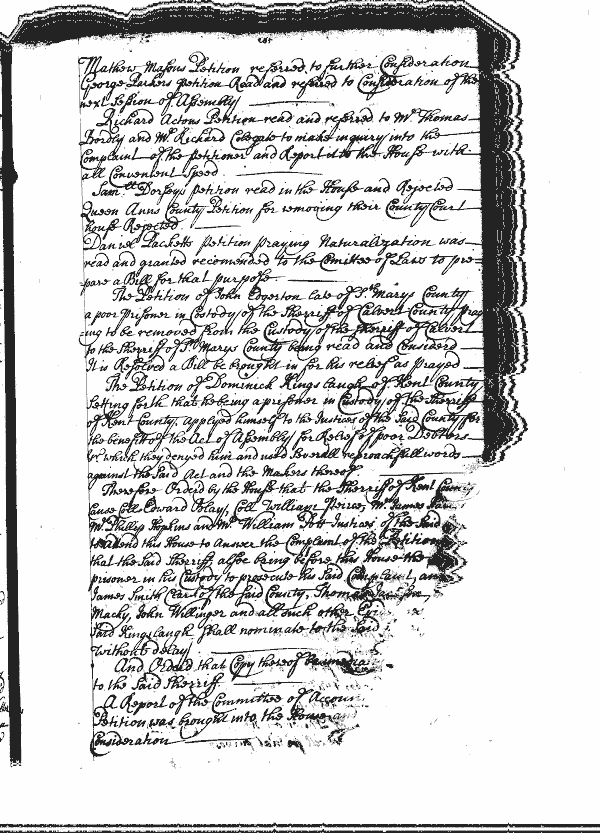 Mathew Masons Petition referred to further Consideration
George Parkers petition Read and referred to Consideration of the
next Session of Assembly
Richard Actons Petition read and referred to Mr Thomas
Bordly and Mr Richard Colegate to make inquiry into the
Complaint of the petitioner and Report it to the House with
all Convenient Speed
Samll Dorseys petition read in the House and Rejected
Queen Anns County Petition for removing their County Court
house Rejected
Daniel Packetts petition praying Naturalization was
read and granted recomended to the Comittee of Laws to pre=
=pare a Bill for that purpose
The Petition of John Edgerton late of St Marys County
a poor prisoner in Custody of the Sherriff of Calvert County pray
=ing to be removed from the Custody of the sherriff of Calvert
to the Sherriff of St Marys County being read and Considerd
It is Resolved a Bill be brought in for his relief as prayed
The Petition of Dominick Kings laugh of Kent County
Setting forth that he being a prisoner in Custody of the Sherriff
of Kent County. applyed himself to the Justices of the Said County for
the benefitt of the Act of Assembly for Relief of poor Debtors
which they denyed him and used Severall reproachfull words
against the Said Act and the Makers thereof
Therefore Orderd by the House that the Sherriff of Kent County
Cause Coll Edward Blay, Coll William Peirce, Mr James
Mr Phillip Hopkins and Mr William Potts Justices of the Said
to attend this House to Answer the Complaint of the Petition
that the Said Sherriff alsoe bring before this House the
prisoner in his Custody to prosecute his Said Complaint, and
James Smith Clark of the Said County, Thomas
Macky, John Willinger and all such other
Said Kingslaugh shall nominate to the Said
Without delay
And Orderd that Copy thereof be
to the Said Sherriff
A Report of the Committee of Accou
Petition was brought into the House
Consideration